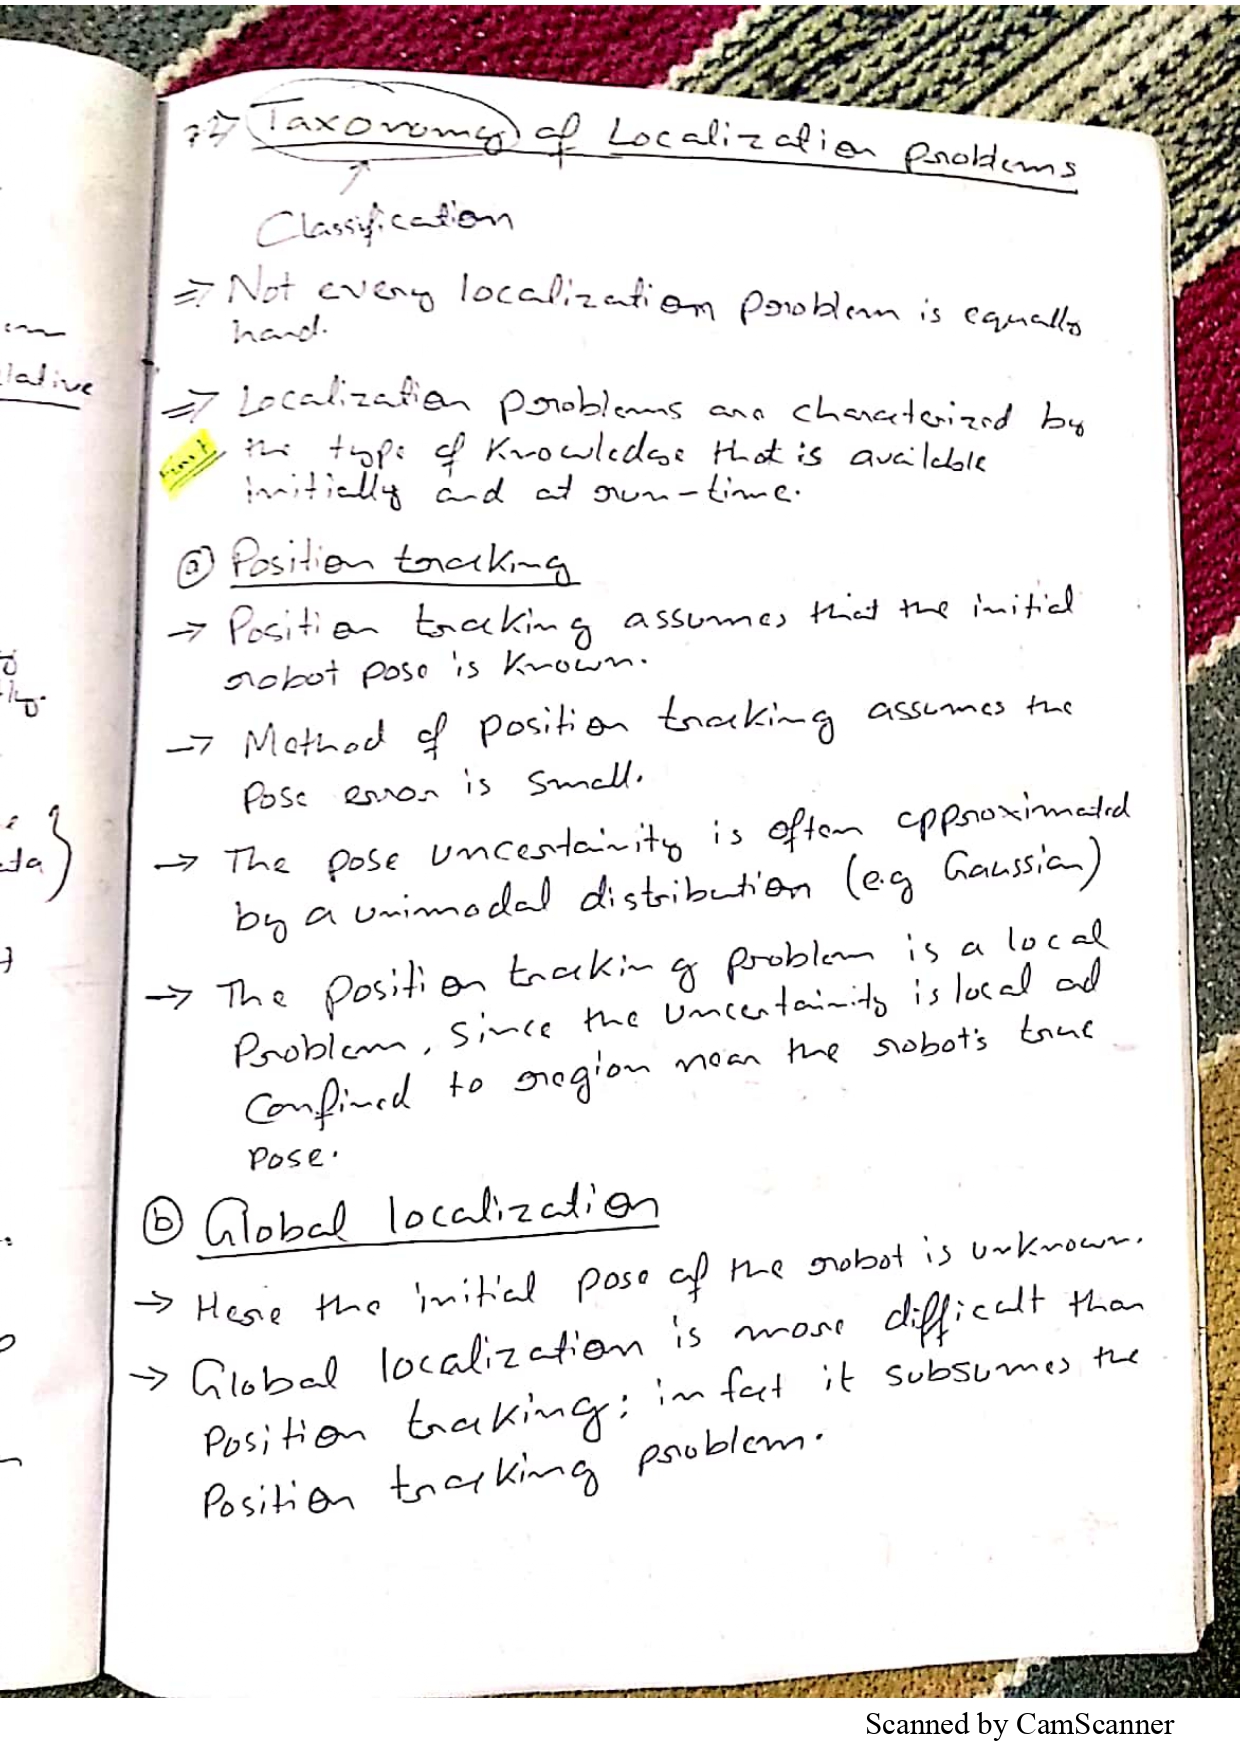 Taxonomy of Localization problems
Classification
=> Not every localization problem is equally
hard.
=> Localization problems are characterized by
the type of knowledge that is available
initially and at run-time.
First
ⓐ Position tracking
-> Position tracking assumes that the initial
robot pose is known.
-> Method of position tracking assumes the
pose error is small.
-> The pose uncertainity is often approximated
by a unimodal distribution (e.g Gaussian)
-> The position tracking problem is a local
Problem, since the uncertainity is local ad
confined to region near the robot's true
pose.
ⓑ Global localization
-> Here the initial pose of the robot is unknown.
-> Global localization is more difficult than
Position tracking; in fact it subsumes the
Position tracking problem.
lative
ly.
ta }
Scanned by CamScanner